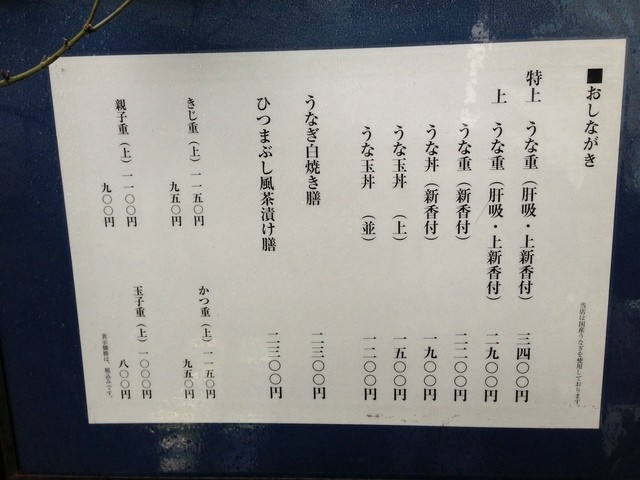 ■おしながき
当店は国産うなぎを使用しております。
特上 うな重(肝吸・上新香付) 三四〇〇円
上 うな重(肝吸・上新香付) 二九〇〇円
うな重(新香付) 二二〇〇円
うな丼(新香付) 一九〇〇円
うな玉丼 (上) 一五〇〇円
うな玉丼 (並) 一二〇〇円
うなぎ白焼き膳 二三〇〇円
ひつまぶし風茶漬け膳 二三〇〇円
きじ重(上)一一五〇円
九五〇円
かつ重(上)一一五〇円
九五〇円
親子重(上)一一〇〇円
九〇〇円
玉子重(上)一〇〇〇円
八〇〇円
表示価格は、税込みです。